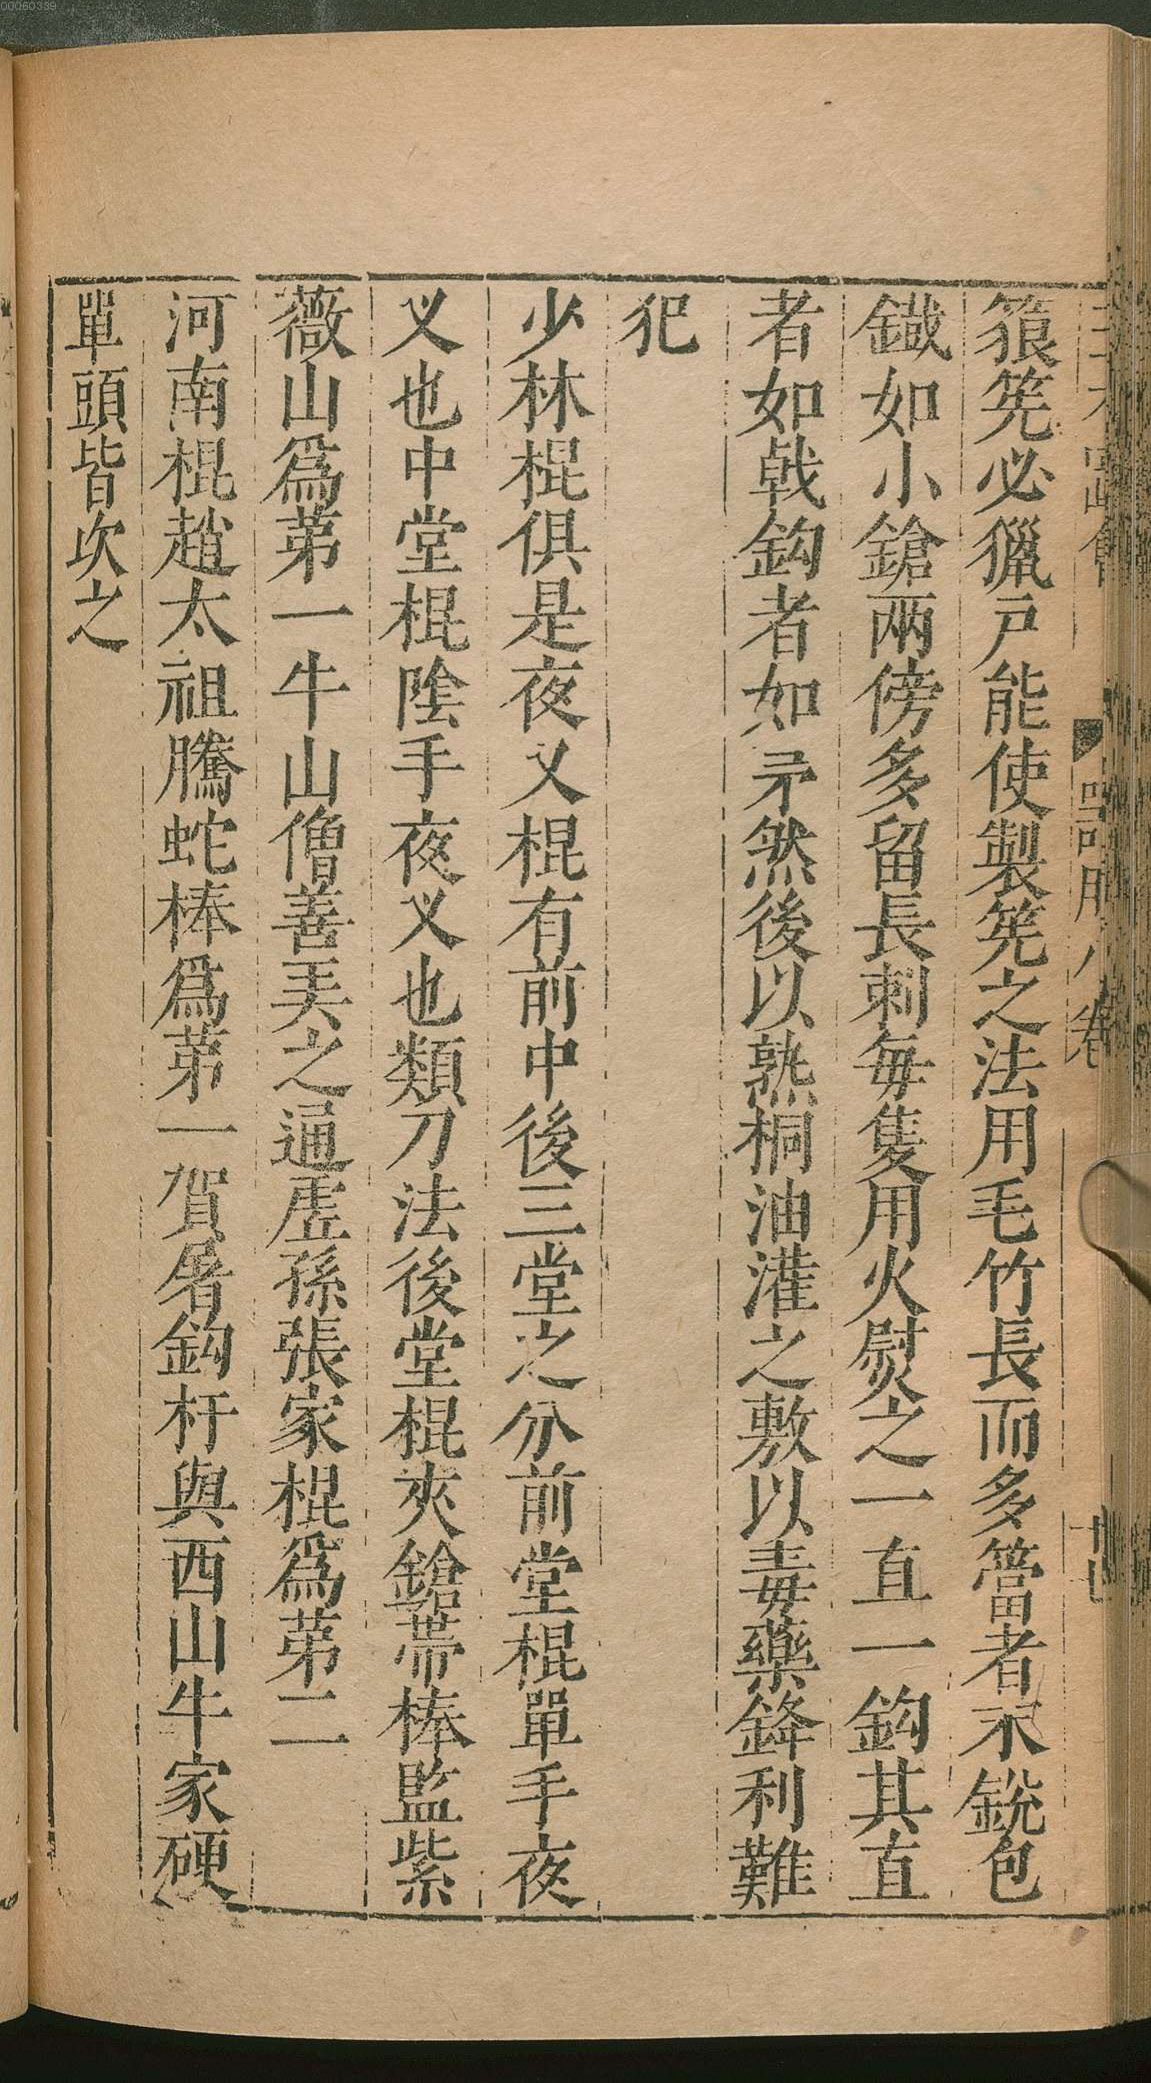 00060389
狼筅必獵戶能使製筅之法用毛竹長而多簹者末銳包
鐵如小鎗兩傍多留長刺每隻用火熨之一直一鈎其直
者如戟鈎者如矛然後以熟桐油灌之敷以毒藥鋒利難
犯
少林棍俱是夜乂棍有前中後三堂之分前堂棍單手夜
乂也中堂棍陰手夜乂也類刀法後堂棍夾鎗帶棒監紫
薇山爲苐一牛山僧善弄之通虛孫張家棍爲苐二
河南棍趙太祖騰蛇棒爲苐一賀屠鈎杆與西山牛家硬
單頭皆次之